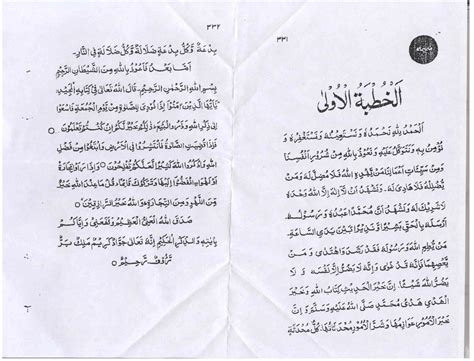 ٣٣١
اَلْخُطْبَةُ الْأُوْلٰى
اَلْحَمْدُ لِلّٰهِ نَحْمَدُهٗ وَنَسْتَعِيْنُهٗ وَنَسْتَغْفِرُهٗ وَ
نُؤْمِنُ بِهٖ وَنَتَوَكَّلُ عَلَيْهِ وَنَعُوْذُ بِاللّٰهِ مِنْ شُرُوْرِ اَنْفُسِنَا
وَمِنْ سَيِّئَاتِ اَعْمَالِنَا مَنْ يَّهْدِهِ اللّٰهُ فَلَا مُضِلَّ لَهٗ وَمَنْ
يُّضْلِلْهُ فَلَا هَادِيَ لَهٗ وَنَشْهَدُ اَنْ لَّا اِلٰهَ اِلَّا اللّٰهُ وَحْدَهٗ
لَا شَرِيْكَ لَهٗ وَنَشْهَدُ اَنَّ مُحَمَّدًا عَبْدُهٗ وَرَسُوْلُهٗ
بِالْحَقِّ بَشِيْرًا وَّنَذِيْرًا بَيْنَ يَدَيِ السَّاعَةِ
مَنْ يُّطِعِ اللّٰهَ وَرَسُوْلَهٗ فَقَدْ رَشَدَ وَاهْتَدٰى وَ مَنْ
يَّعْصِهِمَا فَاِنَّهٗ لَا يَضُرُّ اِلَّا نَفْسَهٗ وَ لَا
يَضُرُّ اللّٰهَ شَيْئًا اِنَّ خَيْرَ الْحَدِيْثِ كِتَابُ اللّٰهِ وَ خَيْرَ
الْهَدْيِ هَدْيُ مُحَمَّدٍ صَلَّى اللّٰهُ عَلَيْهِ وَسَلَّمَ وَ اِنَّ
خَيْرَ الْاُمُوْرِ عَوَازِمُهَا وَ شَرَّ الْاُمُوْرِ مُحْدَثَاتُهَا كُلُّ مُحْدَثَةٍ
٣٣٢
بِدْعَةٌ وَّكُلُّ بِدْعَةٍ ضَلَالَةٌ وَّكُلُّ ضَلَالَةٍ فِي النَّارِ
اَمَّا بَعْدُ فَاَعُوْذُ بِاللّٰهِ مِنَ الشَّيْطَانِ الرَّجِيْمِ
بِسْمِ اللّٰهِ الرَّحْمٰنِ الرَّحِيْمِ قَالَ اللّٰهُ تَعَالٰى فِيْ كِتَابِهِ الْمَجِيْدِ
يٰاَيُّهَا الَّذِيْنَ اٰمَنُوْا اِذَا نُوْدِيَ لِلصَّلٰوةِ مِنْ يَّوْمِ الْجُمُعَةِ فَاسْعَوْا
اِلٰى ذِكْرِ اللّٰهِ وَذَرُوا الْبَيْعَ ذٰلِكُمْ خَيْرٌ لَّكُمْ اِنْ كُنْتُمْ تَعْلَمُوْنَ
فَاِذَا قُضِيَتِ الصَّلٰوةُ فَانْتَشِرُوْا فِي الْاَرْضِ وَابْتَغُوْا مِنْ فَضْلِ
اللّٰهِ وَاذْكُرُوا اللّٰهَ كَثِيْرًا لَّعَلَّكُمْ تُفْلِحُوْنَ وَاِذَا رَاَوْا تِجَارَةً
اَوْ لَهْوَا انْفَضُّوْا اِلَيْهَا وَتَرَكُوْكَ قَائِمًا قُلْ مَا عِنْدَ اللّٰهِ خَيْرٌ
مِّنَ اللَّهْوِ وَمِنَ التِّجَارَةِ وَاللّٰهُ خَيْرُ الرّٰزِقِيْنَ
صَدَقَ اللّٰهُ الْعَلِيُّ الْعَظِيْمُ وَنَفَعَنِيْ وَاِيَّاكُمْ
بِاٰيٰتِهٖ وَالذِّكْرِ الْحَكِيْمِ اِنَّهٗ تَعَالٰى جَوَادٌ كَرِيْمٌ مَّلِكٌ بَرٌّ
رَّءُوْفٌ رَّحِيْمٌ